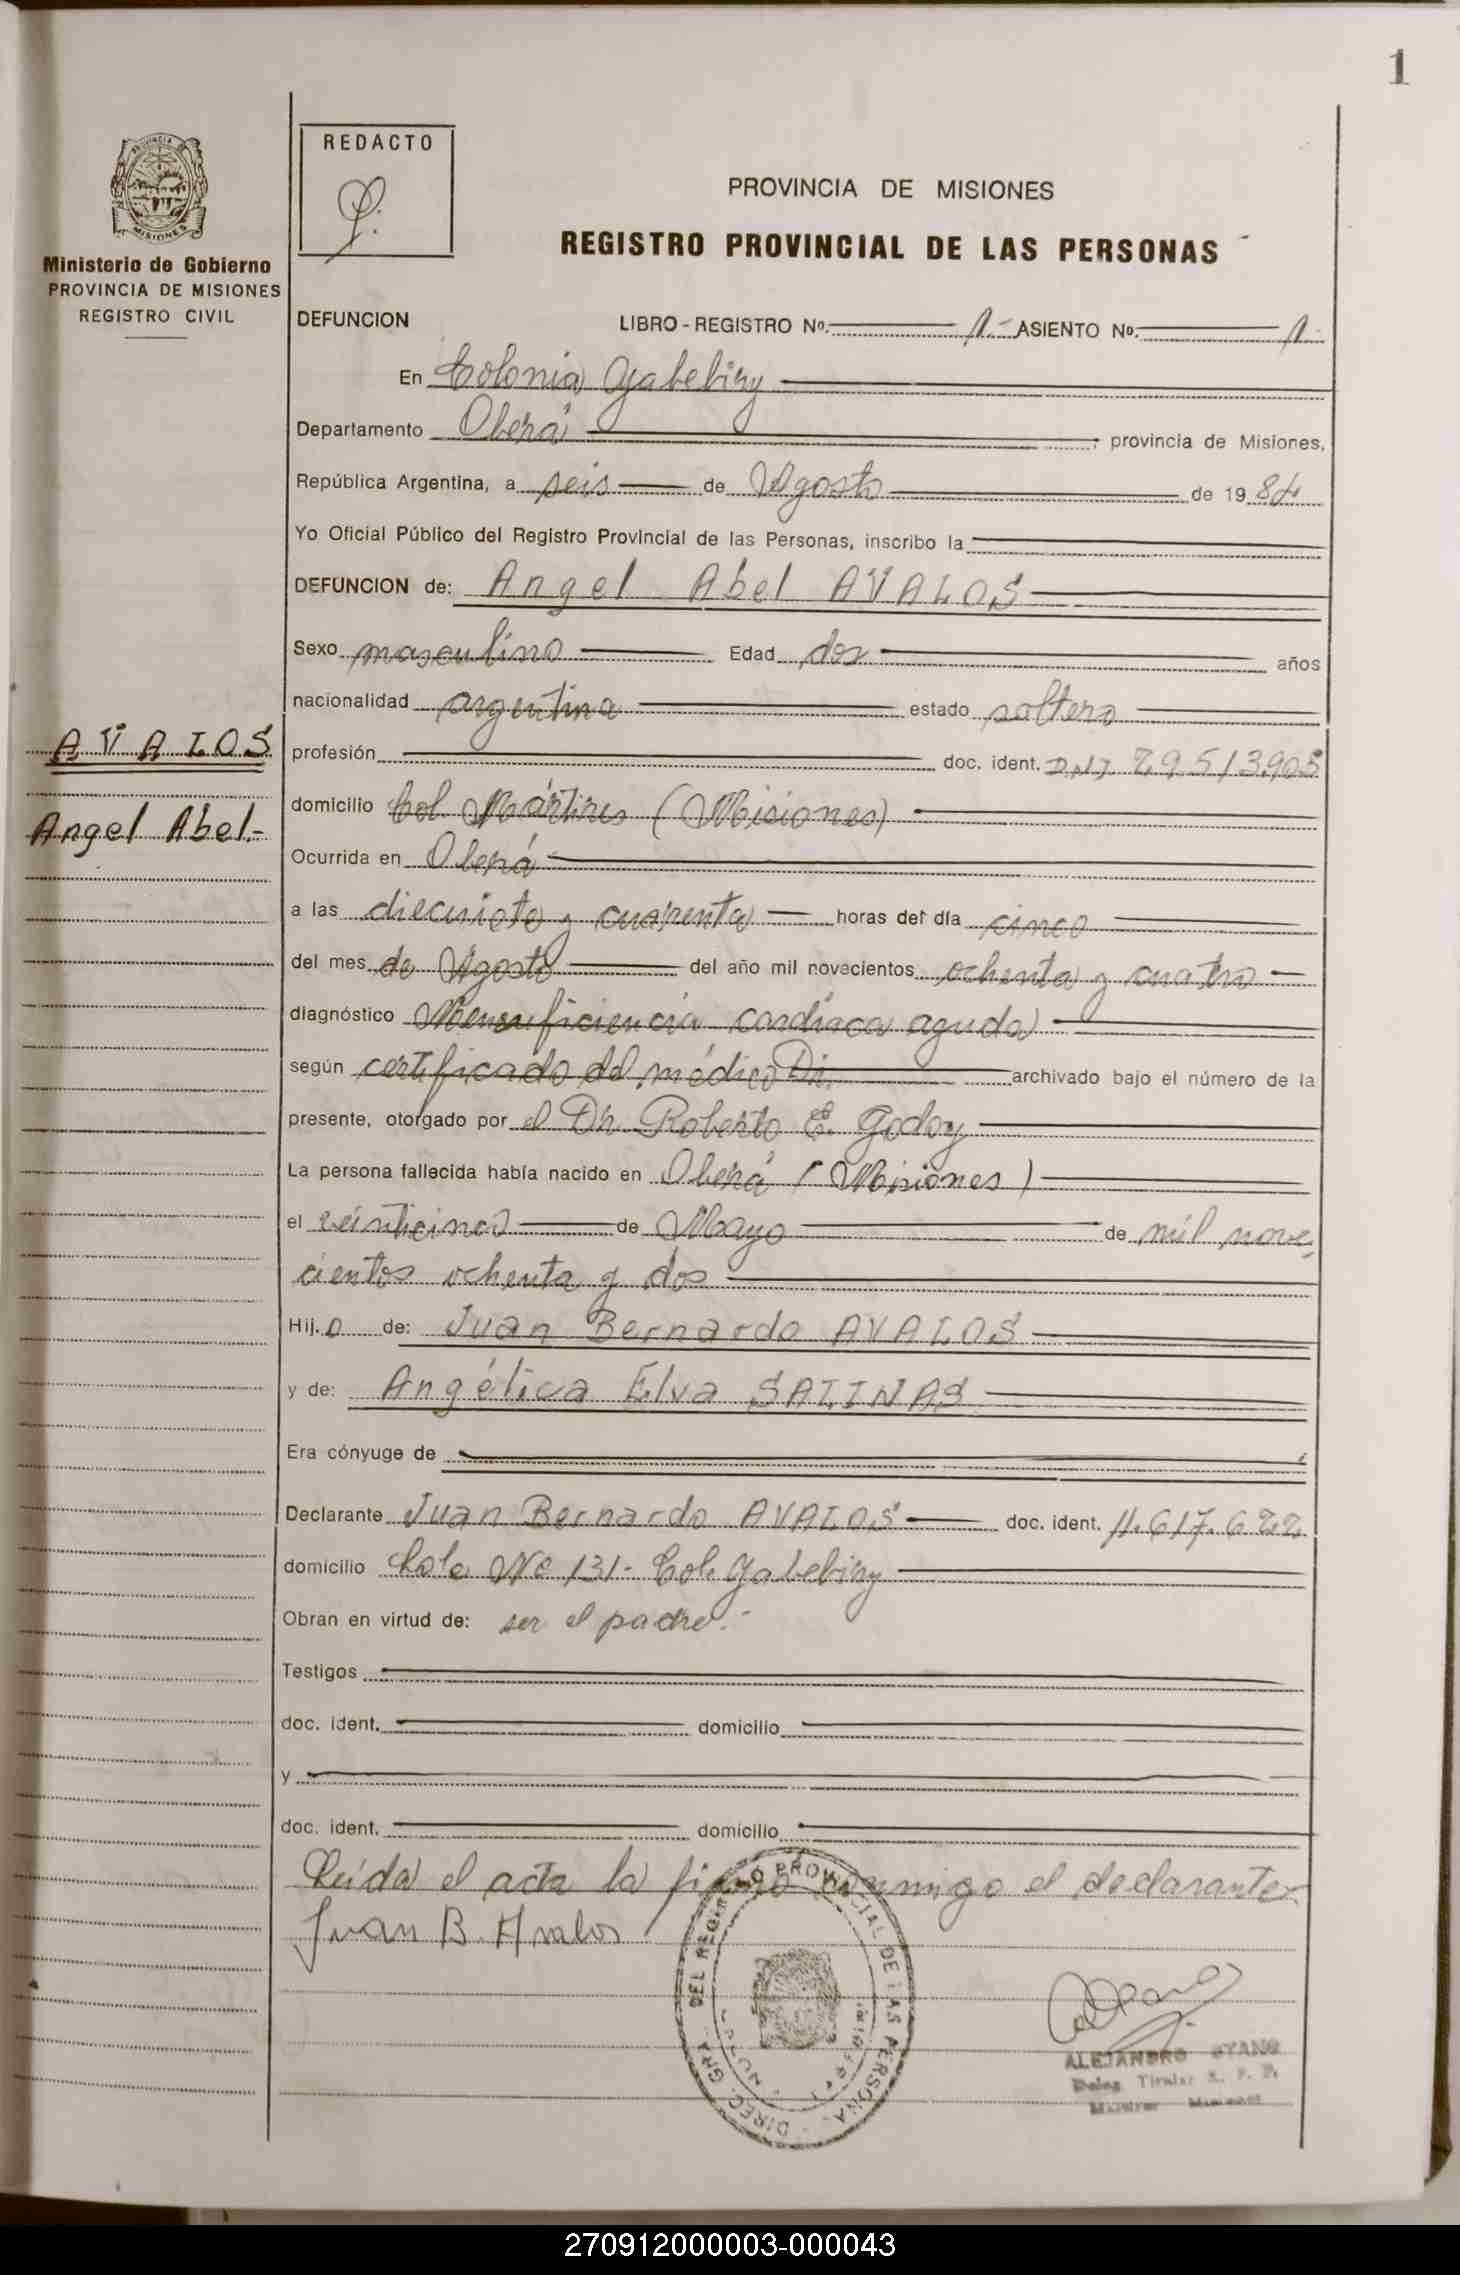 1
REDACTO
PROVINCIA DE MISIONES
REGISTRO PROVINCIAL DE LAS PERSONAS
Ministerio de Gobierno
PROVINCIA DE MISIONES
REGISTRO CIVIL
DEFUNCION LIBRO - REGISTRO Nº. 1 - ASIENTO Nº. 1.
En Colonia Yabebiry
Departamento Oberá ; provincia de Misiones,
República Argentina, a seis de Agosto de 1984
Yo Oficial Público del Registro Provincial de las Personas, inscribo la
DEFUNCION de: Angel Abel AVALOS
Sexo masculino Edad dos años
nacionalidad argentina estado soltero
AVALOS
Angel Abel-
profesión doc. ident. D.N.I. 29.513.905
domicilio Col. Mártires (Misiones)
Ocurrida en Oberá
a las diecisiete y cuarenta horas del día cinco
del mes de Agosto del año mil novecientos ochenta y cuatro
diagnóstico cardíaca aguda
según certificado del médico Dr. archivado bajo el número de la
presente, otorgado por el Dr. Roberto E. Godoy
La persona fallecida había nacido en Oberá (Misiones)
el veinticinco de Mayo de mil nove-
cientos ochenta y dos
Hij.o de: Juan Bernardo AVALOS
y de: Angélica Elva SALINAS
Era cónyuge de
Declarante Juan Bernardo AVALOS doc. ident. 11.617.622
domicilio Lote Nº 131- Col. Yabebiry
Obran en virtud de: ser el padre.-
Testigos
doc. ident. domicilio
y
doc. ident. domicilio
Leída el acta la firma conmigo el declarante
Juan B. Avalos
DIREC. GRAL. DEL REGISTRO PROVINCIAL DE LAS PERSONAS
ALEJANDRO
Deleg. Titular R. P. P.
270912000003-000043